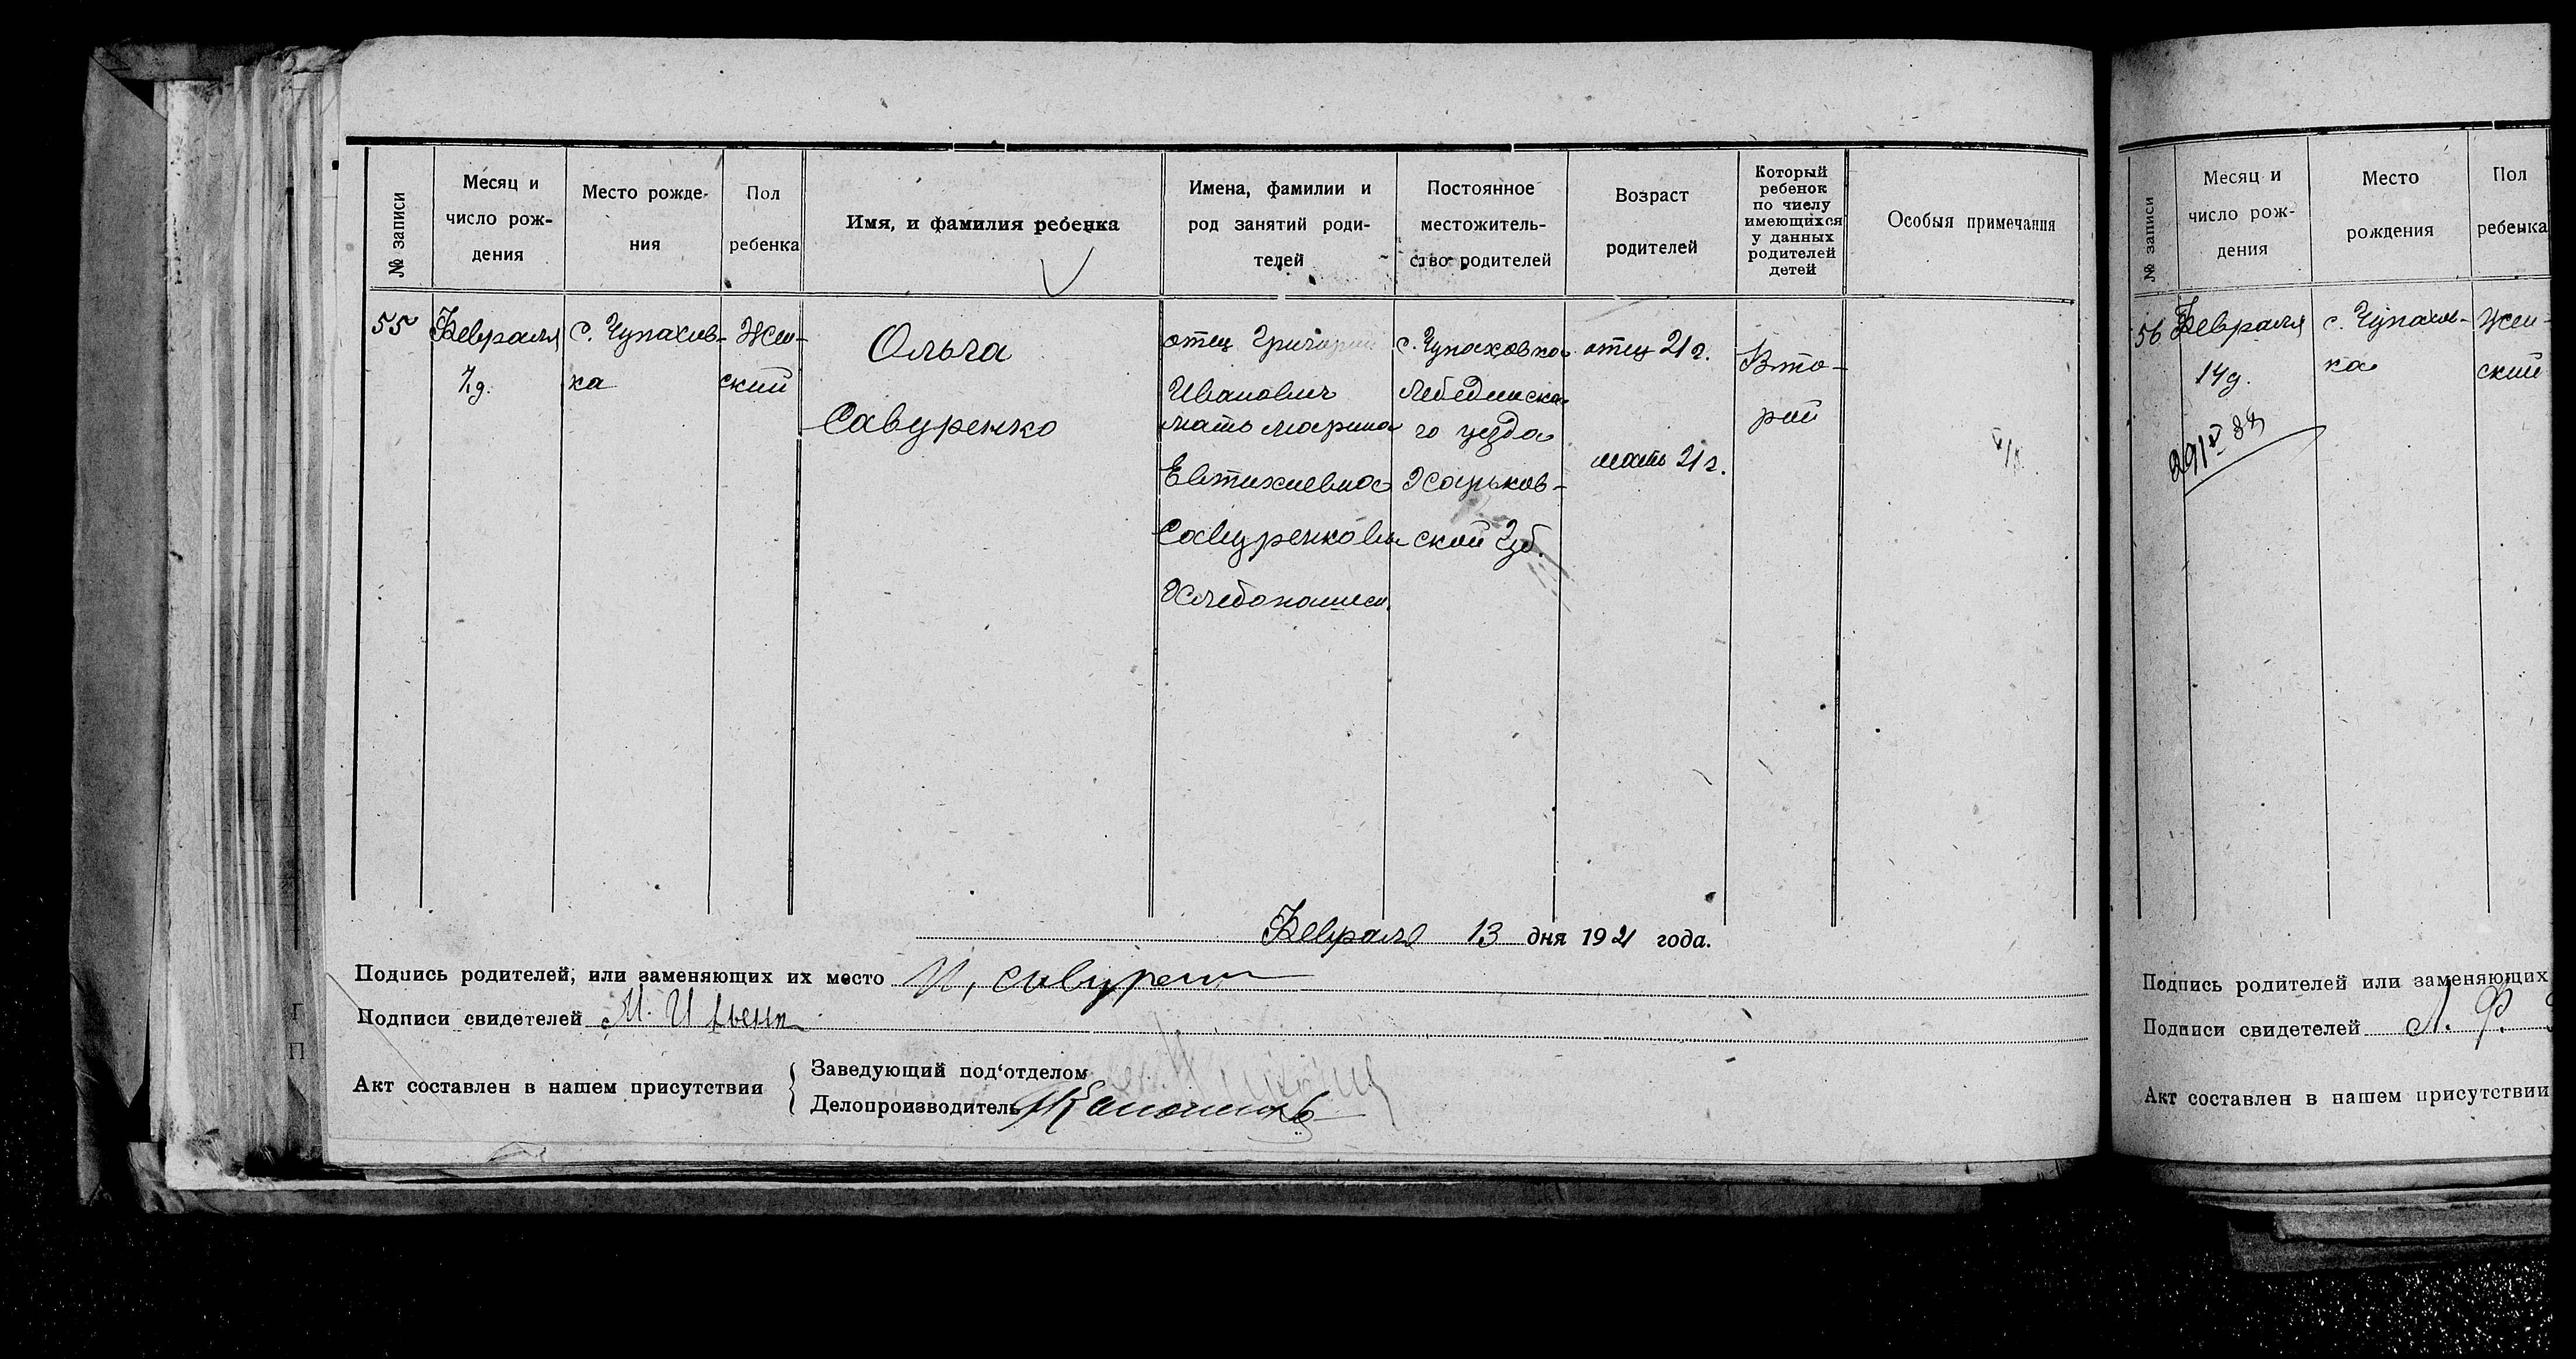 № записи
Месяц и
число рож-
дения
Место рожде-
ния
Пол
ребенка
Имя, и фамилия ребенка
Имена, фамилии и
род занятий роди-
телей
Постоянное
местожитель-
ство родителей
Возраст
родителей
Который
ребенок
по числу
имеющихся
у данных
родителей
детей
Особыя примечания
55
Февраля
7 д.
с. Чупахов-
ка
Жен-
ский
Ольга
Савуренко
отец Григорий
Иванович
мать Марина
Евтихиевна
Савуренковы
Хлебопашец
с. Чупаховка
Лебединска-
го уезда
Харьков-
ской Губ.
отец 21 г.
мать 21 г.
Вто-
рой
Февраля 13 дня 1921 года.
Подпись родителей, или заменяющих их место
Подписи свидетелей
Акт составлен в нашем присутствии
Заведующий под'отделом
Делопроизводитель
№ записи
Месяц и
число рож-
дения
Место
рождения
Пол
ребенка
56
Февраля
14 д.
с. Чупахов-
ка
Жен-
ский
Подпись родителей или заменяющих
Подписи свидетелей Л. Ф.
Акт составлен в нашем присутствии